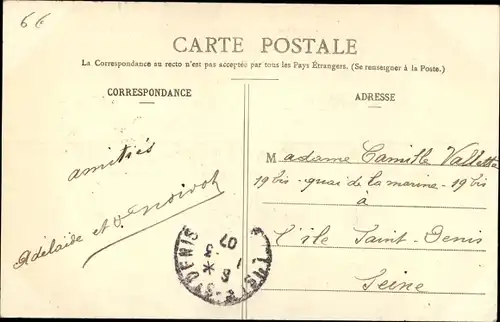 66
CARTE POSTALE
La Correspondance au recto n'est pas acceptée par tous les Pays Étrangers. (Se renseigner à la Poste.)
CORRESPONDANCE
amitiés
Adélaïde et
ADRESSE
Madame Camille Vallette
19 bis - quai de la marine - 19 bis
à
l'ile Saint-Denis
Seine
ST DENIS
07